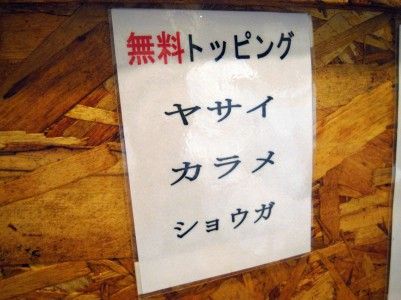 無料トッピング
ヤサイ
カラメ
ショウガ